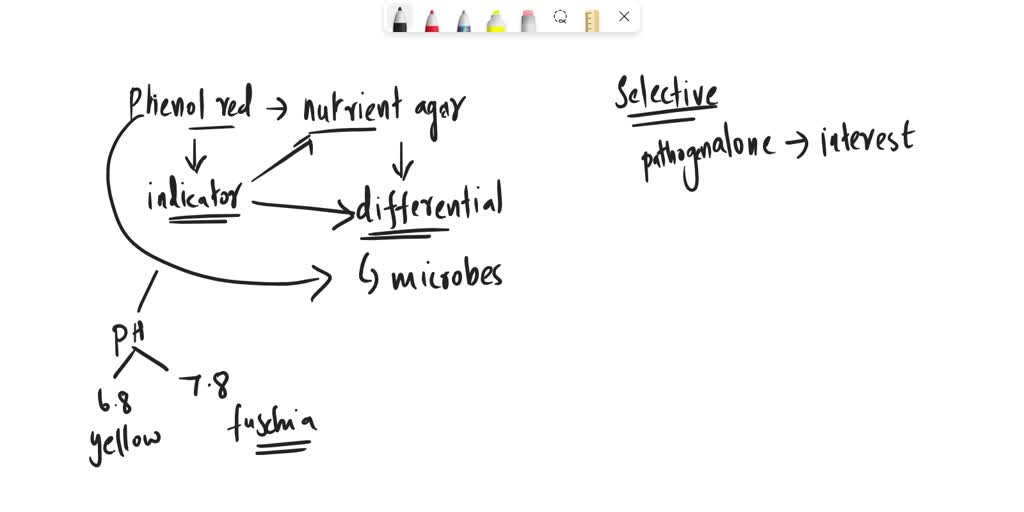 Phenol red → nutrient agar
indicator
differential
↳ microbes
PH
6.8
7.8
yellow
fuschia
Selective
pathogenalone → interest